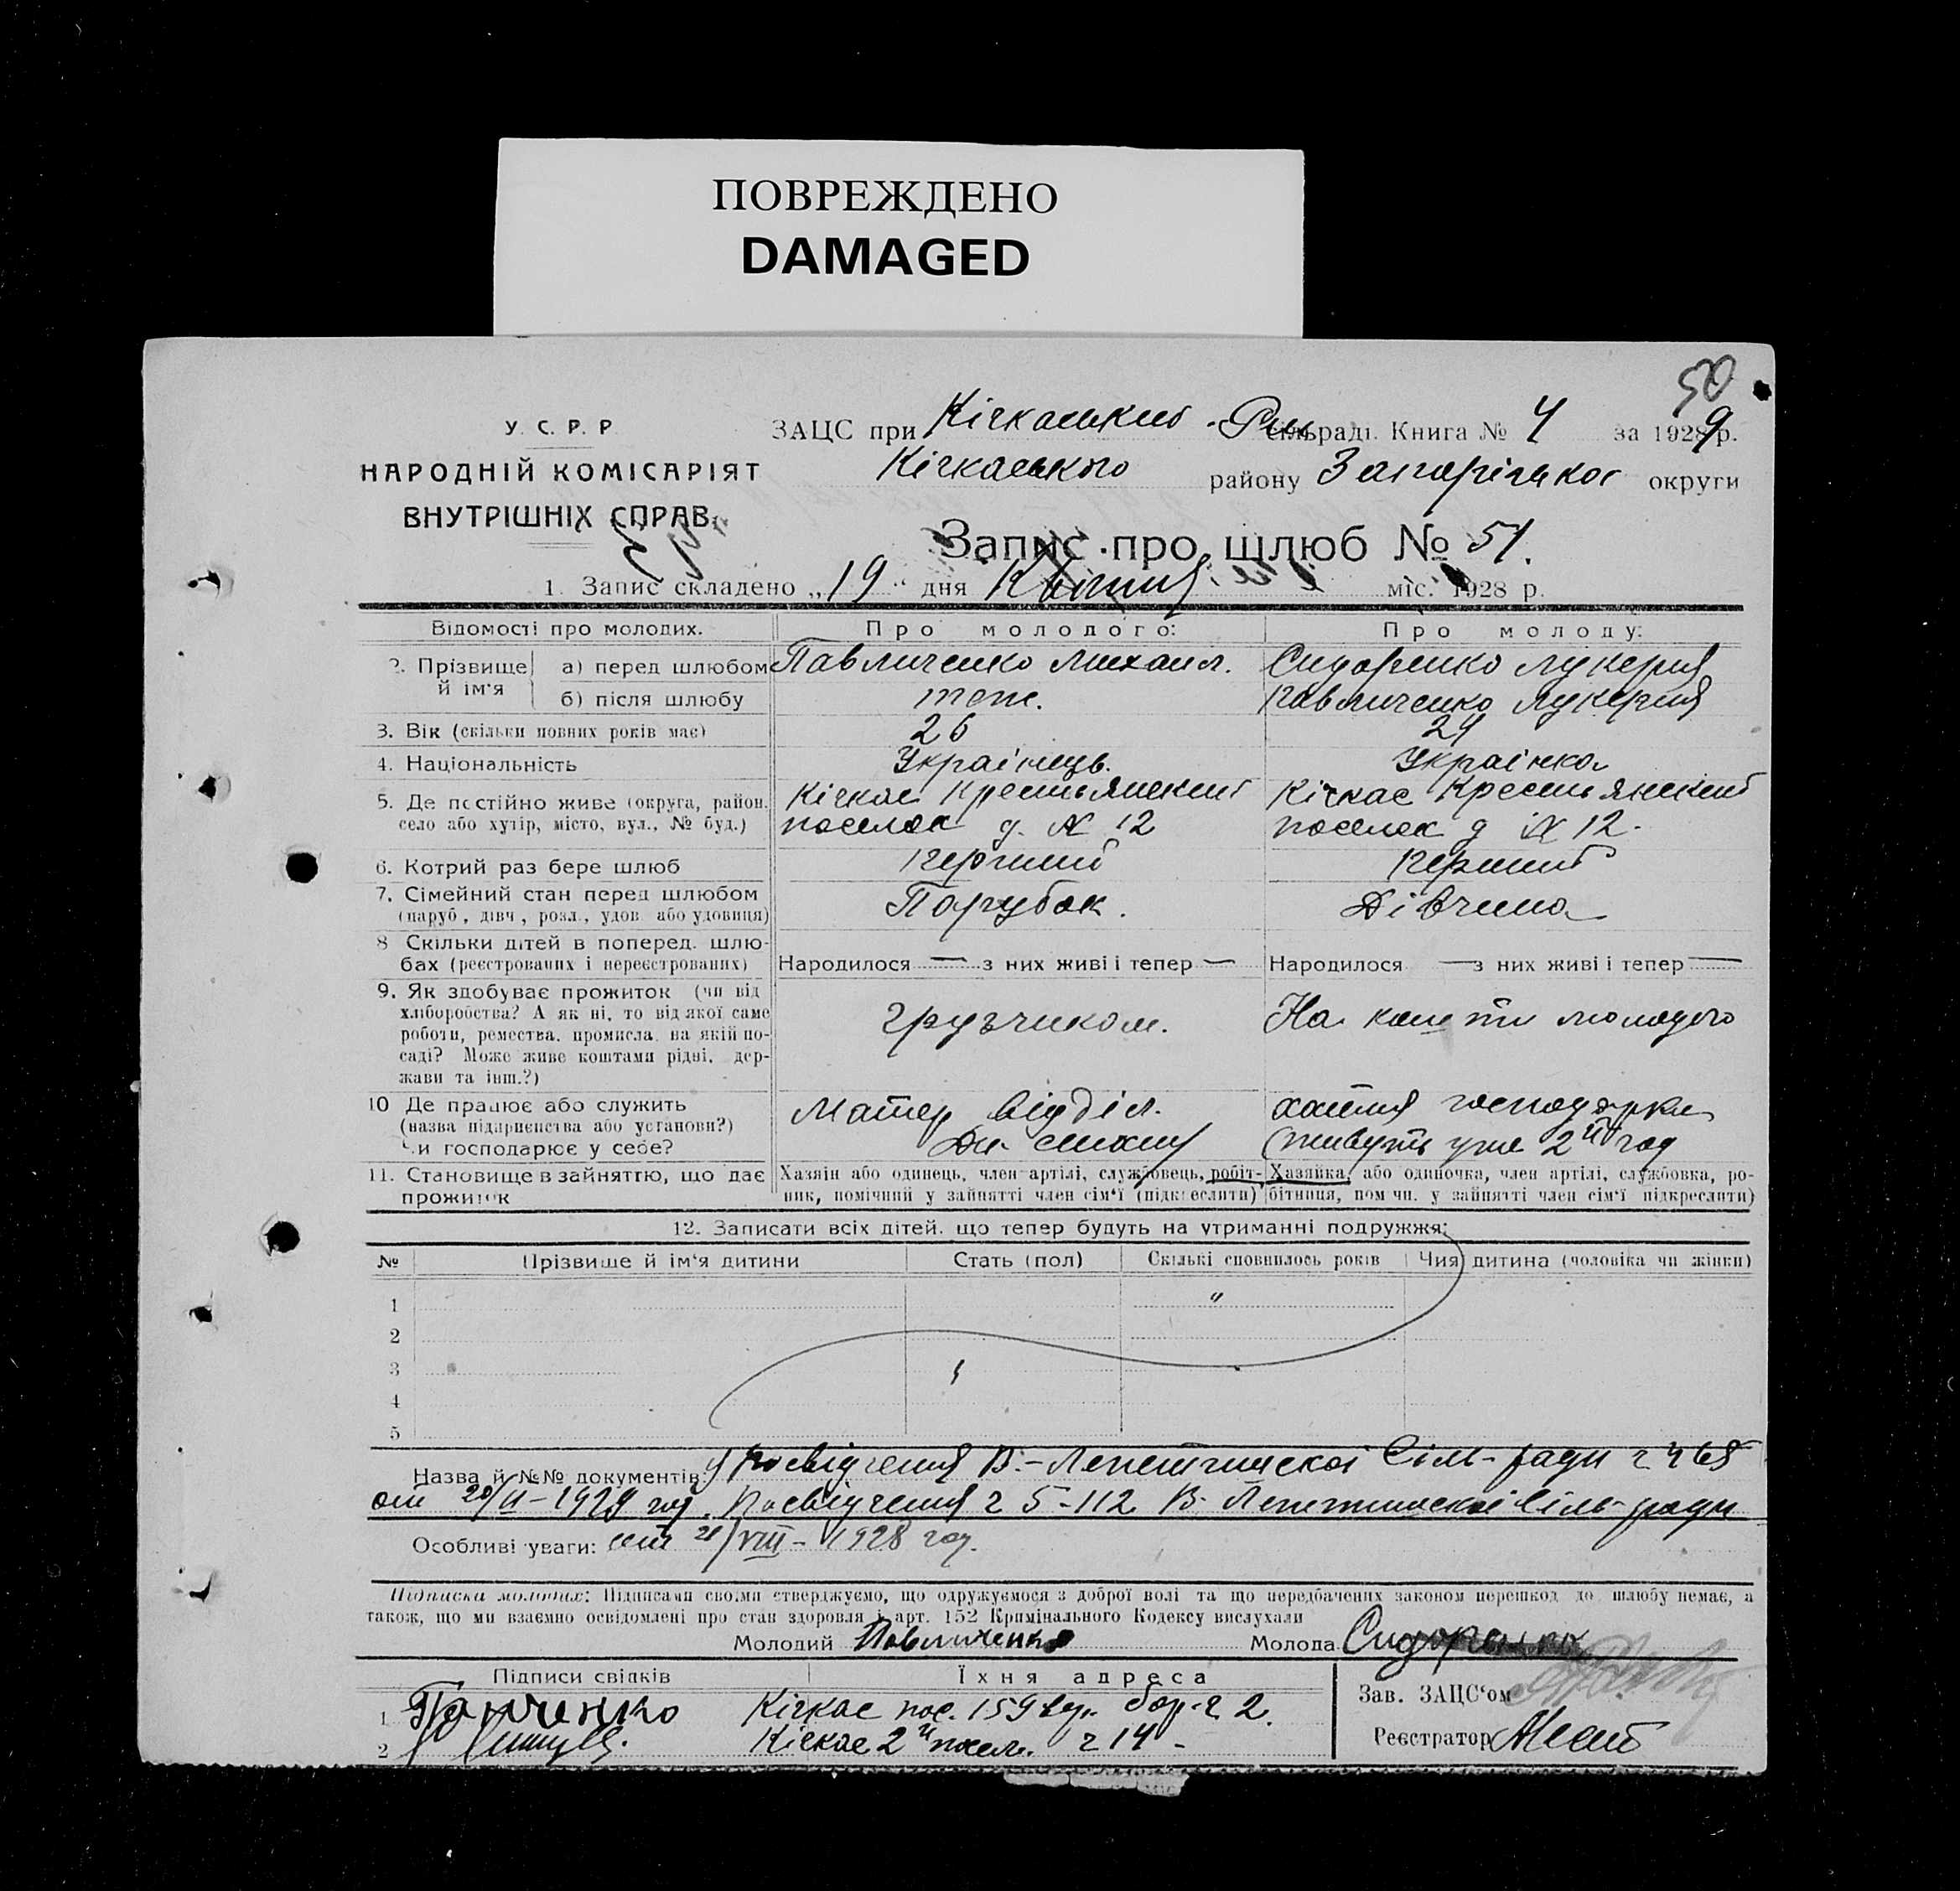 ПОВРЕЖДЕНО
DAMAGED
50
У. С. Р. Р.
НАРОДНІЙ КОМІСАРІЯТ
ВНУТРІШНІХ СПРАВ.
ЗАЦС при Кічкаський сільраді. Книга № 4 за 1929 р.
Кічкаського району Запорізької округи
Запис про шлюб № 51.
1. Запис складено „19“ дня Квітня міс. 1928 р.
Відомості про молодих. Про молодого: Про молоду:
2. Прізвище й ім'я а) перед шлюбом Павличенко Михаил. Сидоренко Лукерия
б) після шлюбу тож. Павличенко Лукерия
3. Вік (скільки повних років має) 26 24
4. Національність Украінець. Украінка
5. Де постійно живе (округа, район, село або хутір, місто, вул., № буд.) Кічкас Крестьянский поселок д. № 12 Кічкас Крестьянский поселок д № 12.
6. Котрий раз бере шлюб первий первий
7. Сімейний стан перед шлюбом (паруб., дівч., розл., удов. або удовиця) Парубок. Дівчина
8 Скільки дітей в поперед. шлюбах (реєстрованих і нереєстрованих) Народилося — з них живі і тепер — Народилося — з них живі і тепер —
9. Як здобуває прожиток (чи від хліборобства? А як ні, то від якої саме роботи, ремества, промисла, на якій посаді? Може живе коштами рідні, держави та інш.?) грузчиком. На кошти молодого
10 Де працює або служить (назва підприємства або установи?) Чи господарює у себе? Матер відділ. хатня господарка (живуть уже 2й год
11. Становище в зайняттю, що дає прожиток Хазяїн або одинець, член артілі, службовець, робітник, помічний у зайнятті член сім'ї (підкреслити) Хазяйка, або одиночка, член артілі, службовка, робітниця, пом чн. у зайнятті член сім'ї підкреслити)
12. Записати всіх дітей, що тепер будуть на утриманні подружжя:
№ Прізвище й ім'я дитини Стать (пол) Скількі сповнилось років Чия дитина (чоловіка чи жінки)
1 "
2
3
4
5
Назва й №№ документів: Посвідчення В.-Лепетиської Сіль-ради ч 468
от 20/II-1929 год. Посвідчення ч 5-112 В. Лепетиської Сіль-ради
Особливі уваги: от 21/VIII-1928 год.
Підписка молодих: Підписами своїми стверджуємо, що одружуємося з доброї волі та що передбачених законом перешкод до шлюбу немає, а
також, що ми взаємно освідомлені про стан здоровля і арт. 152 Кримінального Кодексу вислухали
Молодий Павличенко Молода Сидоренко
Підписи свідків Їхня адреса
1 Панченко Кічкас пос. 159 бар-ч 2.
2 Кічкас 2й посел. ч 14 -
Зав. ЗАЦС'ом
Реєстратор